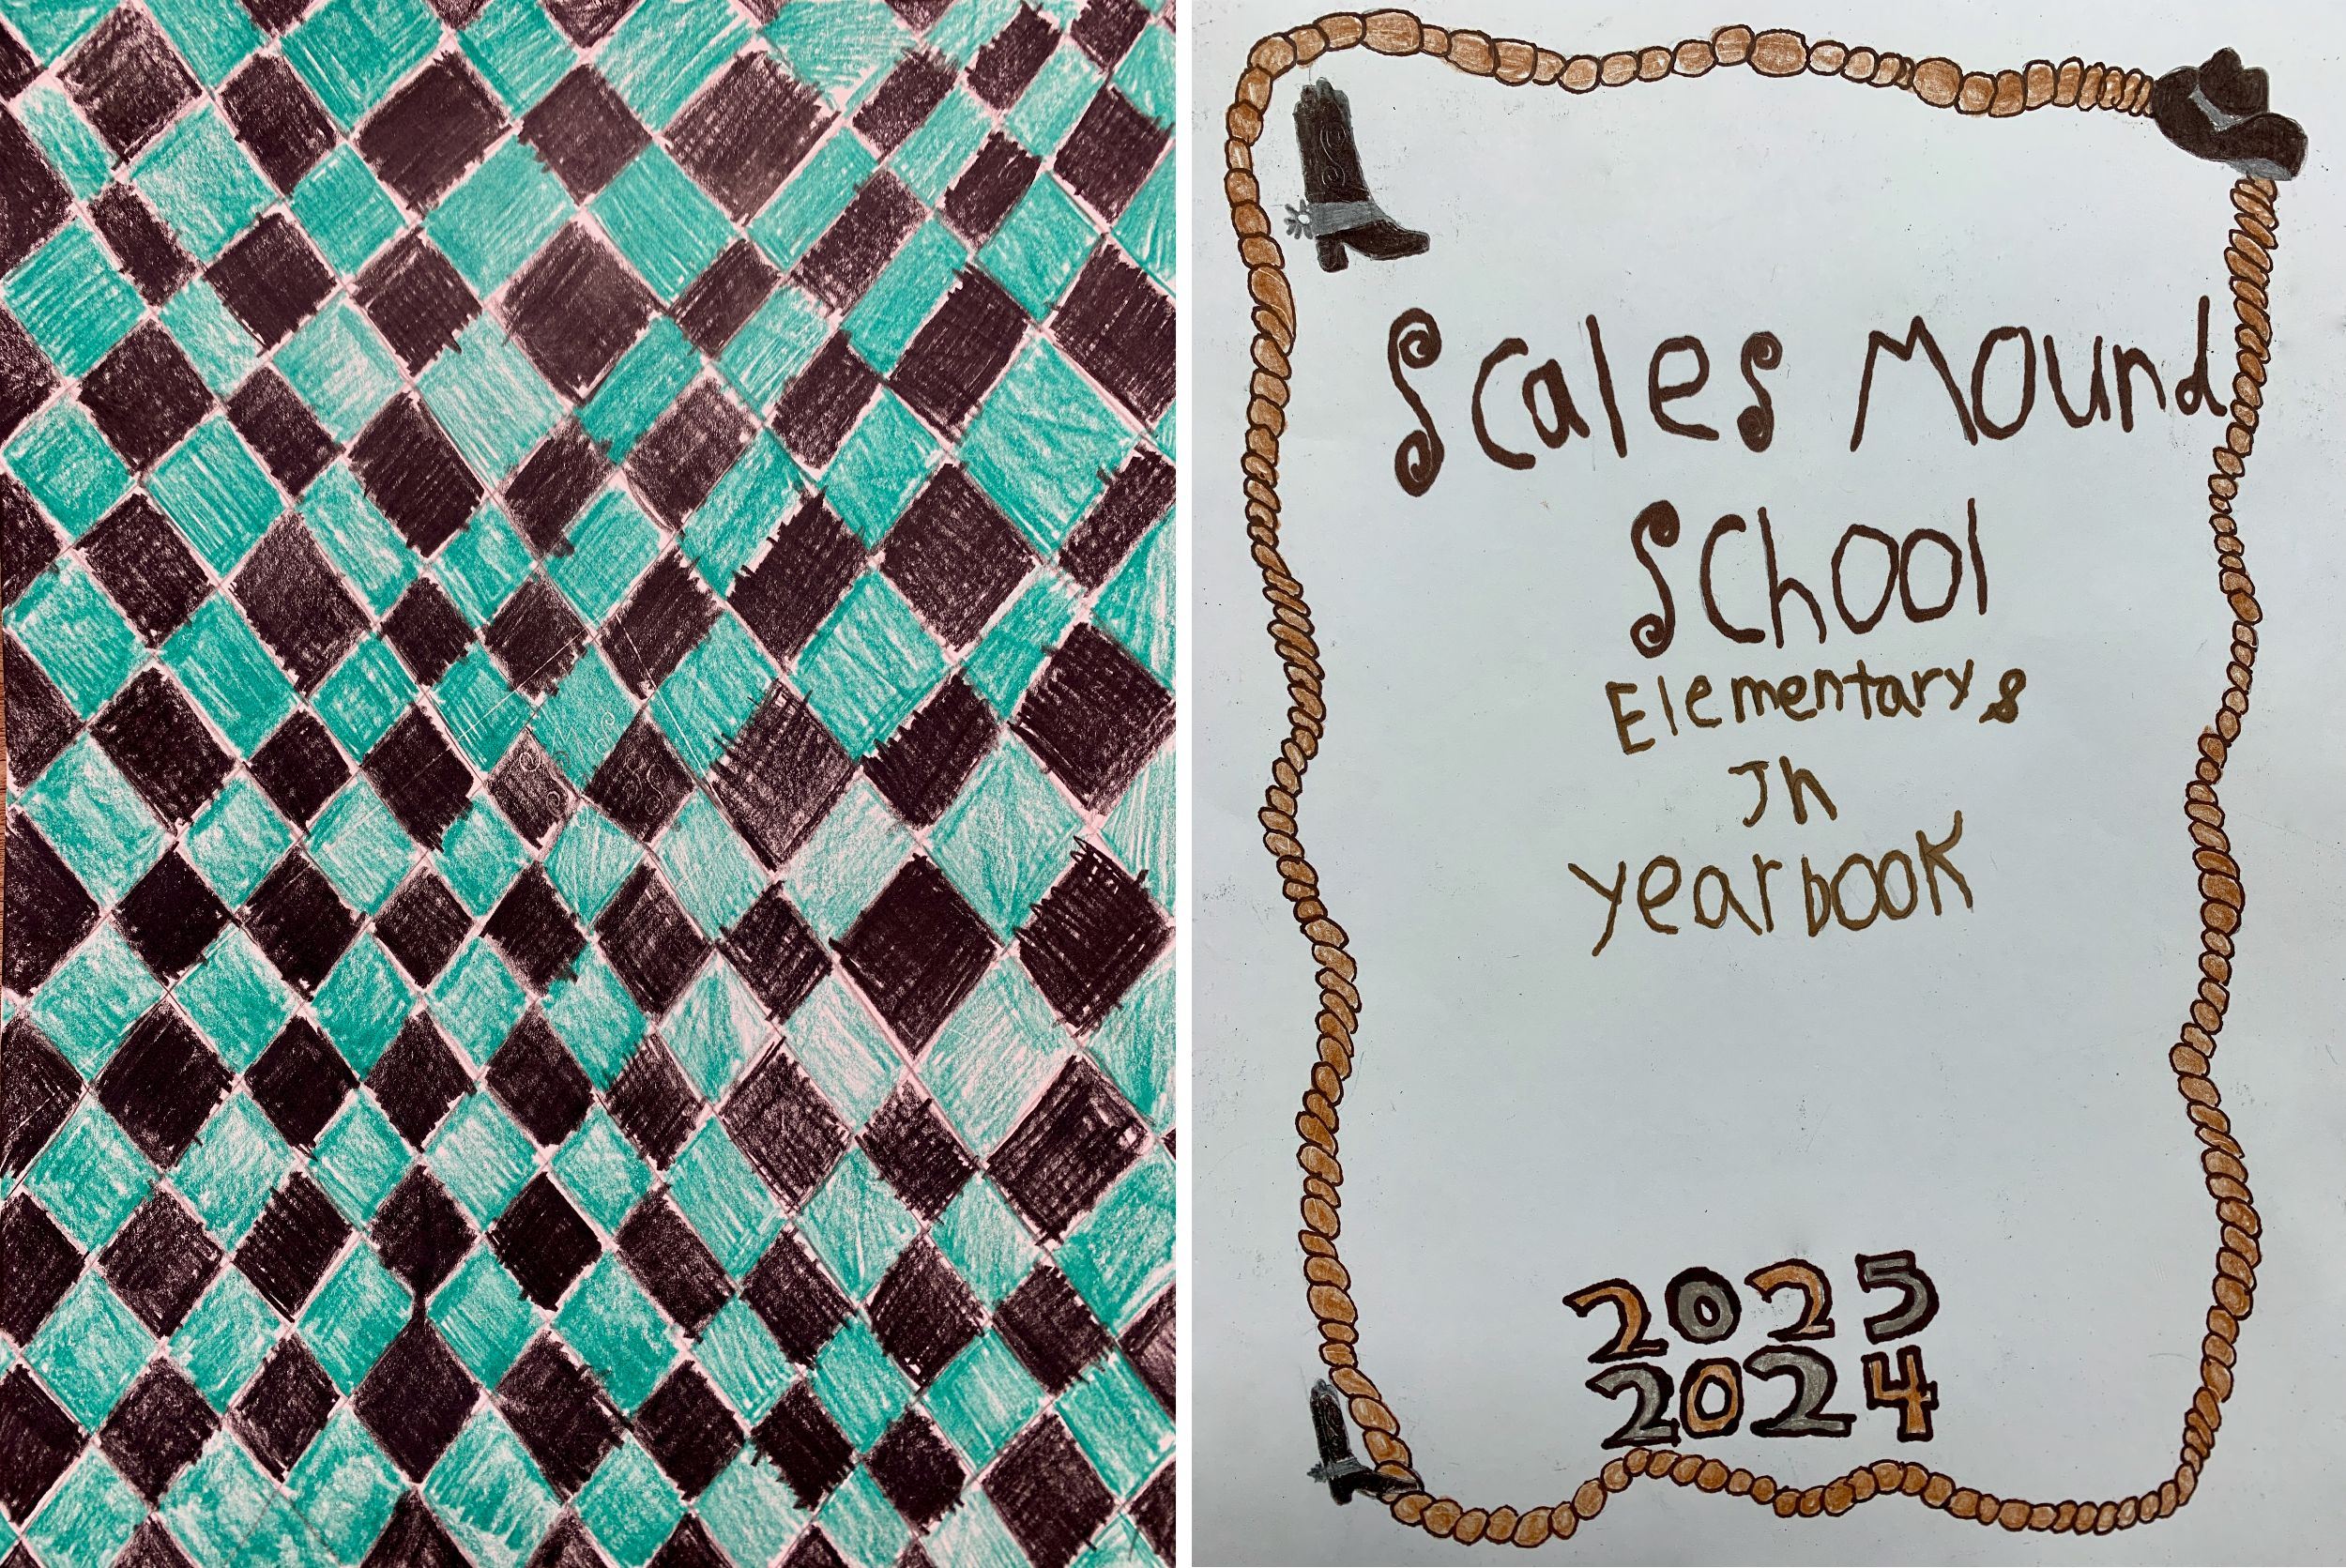 Scales Mound
School
Elementary &
Jh
Yearbook
2025
2024